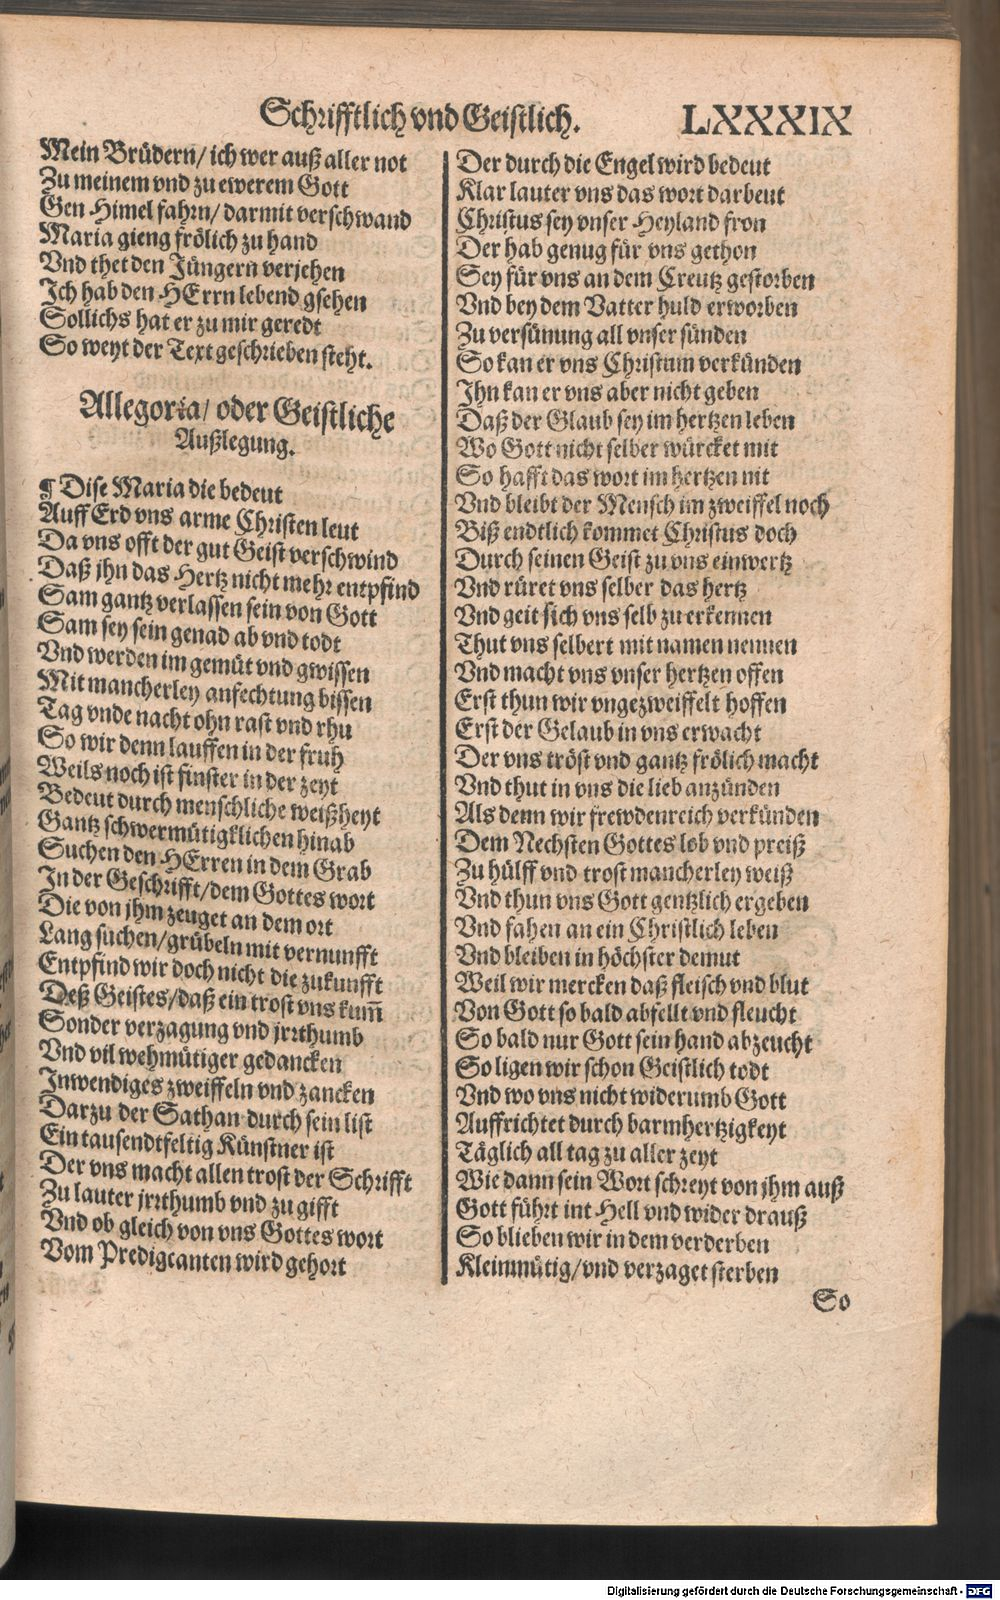 Schrifftlich vnd Geistlich. LXXXIX
Mein Brüdern/ ich wer auß aller not
Zu meinem vnd zu ewerem Gott
Gen Himel fahrn/ darmit verschwand
Maria gieng frölich zu hand
Vnd thet den Jüngern verjehen
Ich hab den HErrn lebend gsehen
Sollichs hat er zu mir geredt
So weyt der Text geschrieben steht.
Allegoria/ oder Geistliche
Außlegung.
¶ Dise Maria die bedeut
Auff Erd vns arme Christen leut
Da vns offt der gut Geist verschwind
Daß jhn das Hertz nicht mehr entpfind
Sam gantz verlassen sein von Gott
Sam sey sein genad ab vnd todt
Vnd werden im gemüt vnd gwissen
Mit mancherley anfechtung bissen
Tag vnde nacht ohn rast vnd rhu
So wir denn lauffen in der fruh
Weils noch ist finster in der zeyt
Bedeut durch menschliche weißheyt
Gantz schwermütigklichen hinab
Suchen den HErren in dem Grab
In der Geschrifft/ dem Gottes wort
Die von jhm zeuget an dem ort
Lang suchen/ grübeln mit vernunfft
Entpfind wir doch nicht die zukunfft
Deß Geistes/ daß ein trost vns kum̅
Sonder verzagung vnd jrrthumb
Vnd vil wehmütiger gedancken
Inwendiges zweiffeln vnd zancken
Darzu der Sathan durch sein list
Ein tausendtfeltig Künstner ist
Der vns macht allen trost der Schrifft
Zu lauter jrrthumb vnd zu gifft
Vnd ob gleich von vns Gottes wort
Vom Predigcanten wird gehort
Der durch die Engel wird bedeut
Klar lauter vns das wort darbeut
Christus sey vnser Heyland fron
Der hab genug für vns gethon
Sey für vns an dem Creutz gestorben
Vnd bey dem Vatter huld erworben
Zu versünung all vnser sünden
So kan er vns Christum verkünden
Ihn kan er vns aber nicht geben
Daß der Glaub sey im hertzen leben
Wo Gott nicht selber würcket mit
So hafft das wort im hertzen nit
Vnd bleibt der Mensch im zweiffel noch
Biß endtlich kommet Christus doch
Durch seinen Geist zu vns einwertz
Vnd rüret vns selber das hertz
Vnd geit sich vns selb zu erkennen
Thut vns selbert mit namen nennen
Vnd macht vns vnser hertzen offen
Erst thun wir vngezweiffelt hoffen
Erst der Gelaub in vns erwacht
Der vns tröst vnd gantz frölich macht
Vnd thut in vns die lieb anzünden
Als denn wir frewdenreich verkünden
Dem Nechsten Gottes lob vnd preiß
Zu hülff vnd trost mancherley weiß
Vnd thun vns Gott gentzlich ergeben
Vnd fahen an ein Christlich leben
Vnd bleiben in höchster demut
Weil wir mercken daß fleisch vnd blut
Von Gott so bald abfellt vnd fleucht
So bald nur Gott sein hand abzeucht
So ligen wir schon Geistlich todt
Vnd wo vns nicht widerumb Gott
Auffrichtet durch barmhertzigkeyt
Täglich all tag zu aller zeyt
Wie dann sein Wort schreyt von jhm auß
Gott führt int Hell vnd wider drauß
So blieben wir in dem verderben
Kleinmütig/ vnd verzaget sterben
So
Digitalisierung gefördert durch die Deutsche Forschungsgemeinschaft - DFG